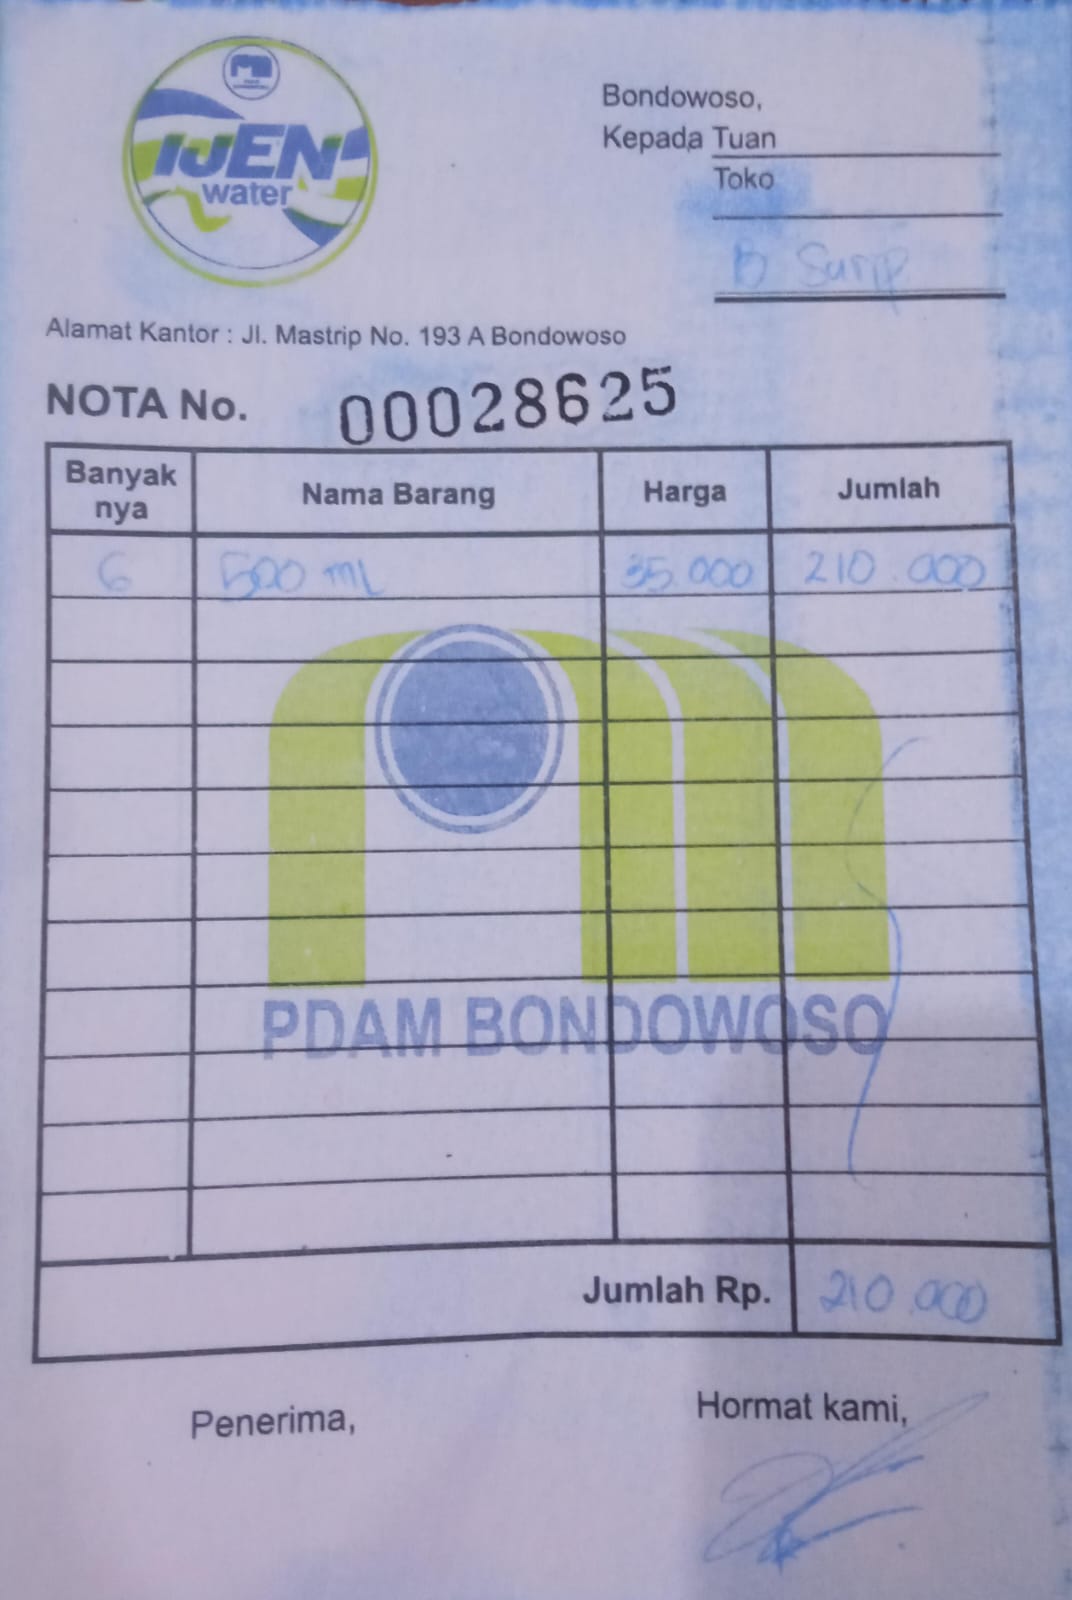 IJEN
water
Bondowoso,
Kepada Tuan
Toko
B Surip
Alamat Kantor : Jl. Mastrip No. 193 A Bondowoso
NOTA No. 00028625
Banyak nya Nama Barang Harga Jumlah
6 500 ML 35.000 210.000
PDAM BONDOWOSO
Jumlah Rp. 210.000
Penerima, Hormat kami,